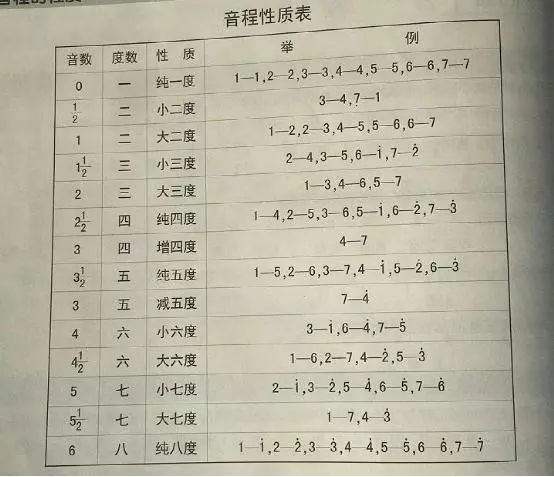 音程性质表
音数 度数 性 质 举 例
0 一 纯一度 1—1,2—2,3—3,4—4,5—5,6—6,7—7
1/2 二 小二度 3—4,7—1
1 二 大二度 1—2,2—3,4—5,5—6,6—7
1 1/2 三 小三度 2—4,3—5,6—1̇,7—2̇
2 三 大三度 1—3,4—6,5—7
2 1/2 四 纯四度 1—4,2—5,3—6,5—1̇,6—2̇,7—3̇
3 四 增四度 4—7
3 1/2 五 纯五度 1—5,2—6,3—7,4—1̇,5—2̇,6—3̇
3 五 减五度 7—4̇
4 六 小六度 3—1̇,6—4̇,7—5̇
4 1/2 六 大六度 1—6,2—7,4—2̇,5—3̇
5 七 小七度 2—1̇,3—2̇,5—4̇,6—5̇,7—6̇
5 1/2 七 大七度 1—7,4—3̇
6 八 纯八度 1—1̇,2—2̇,3—3̇,4—4̇,5—5̇,6—6̇,7—7̇